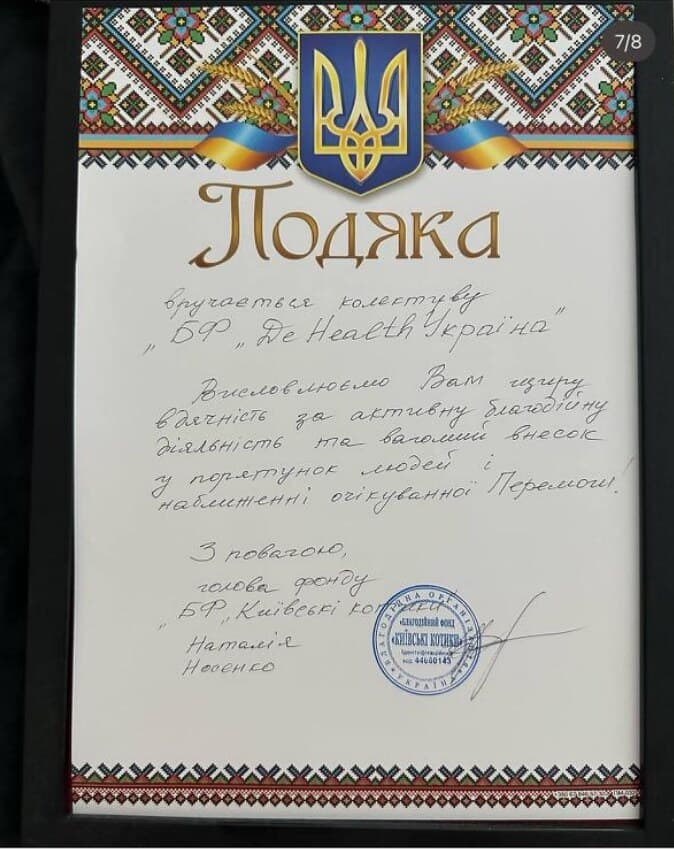 7/8
Подяка
вручається колективу
„БФ „De Health Україна"
Висловлюємо Вам щиру
вдячність за активну благодійну
діяльність та вагомий внесок
у порятунок людей і
наближенні очікуванної Перемоги!
З повагою,
голова фонду
„БФ „Київські котики"
Наталія
Носенко
БЛАГОДІЙНА ОРГАНІЗАЦІЯ
«БЛАГОДІЙНИЙ ФОНД
«КИЇВСЬКІ КОТИКИ»
Ідентифікаційний
код 44680143
* УКРАЇНА *